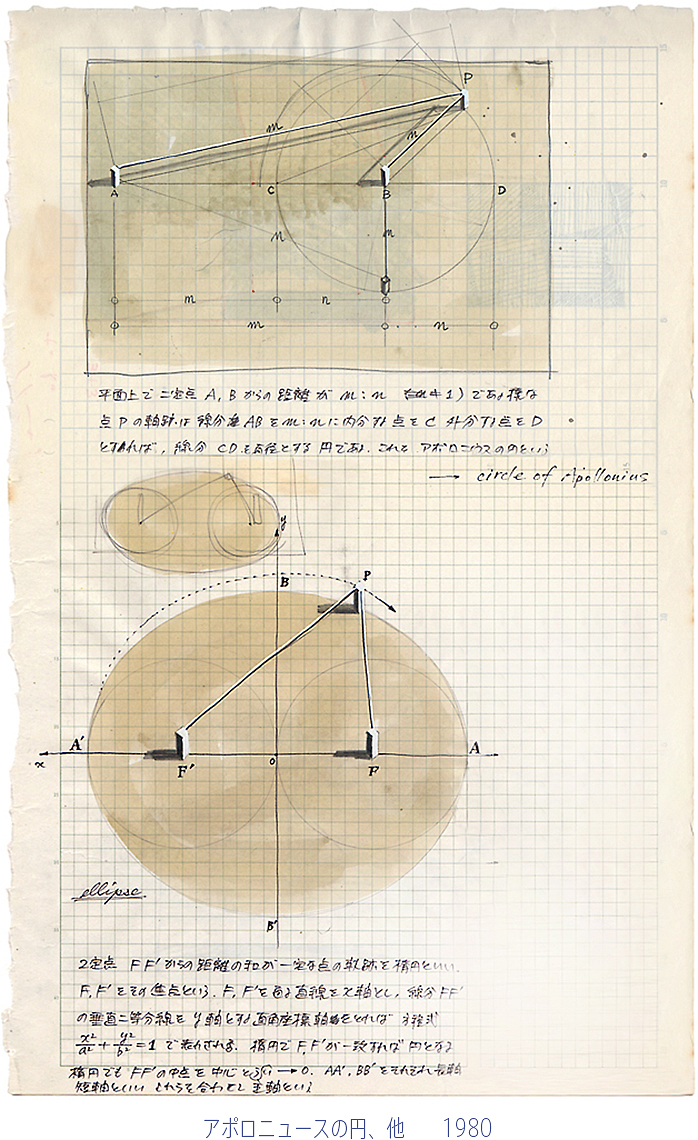 P
m
n
A
C
B
D
n
n
m
n
m
n
平面上で二定点 A, B からの距離が m:n (m≠1) である様な
点 P の軌跡は 線分 AB を m:n に内分する点を C 外分する点を D
とすれば, 線分 CD を直径とする円である. これを アポロニウスの円という
→ circle of Apollonius
y
B
P
A'
A
x
F'
O
F
ellipse
B'
2定点 F F' からの距離の和が一定な点の軌跡を楕円といい.
F, F' をその焦点という. F, F' を通る直線を x 軸とし, 線分 FF'
の垂直二等分線を y 軸とする直角座標軸をとれば 方程式
x²/a² + y²/b² = 1 で表わされる. 楕円で F, F' が一致すれば 円となる
楕円でも FF' の中点を中心という → O. AA', BB' をそれぞれ長軸
短軸といい これらを合わせて 主軸という
アポロニュースの円、他 1980